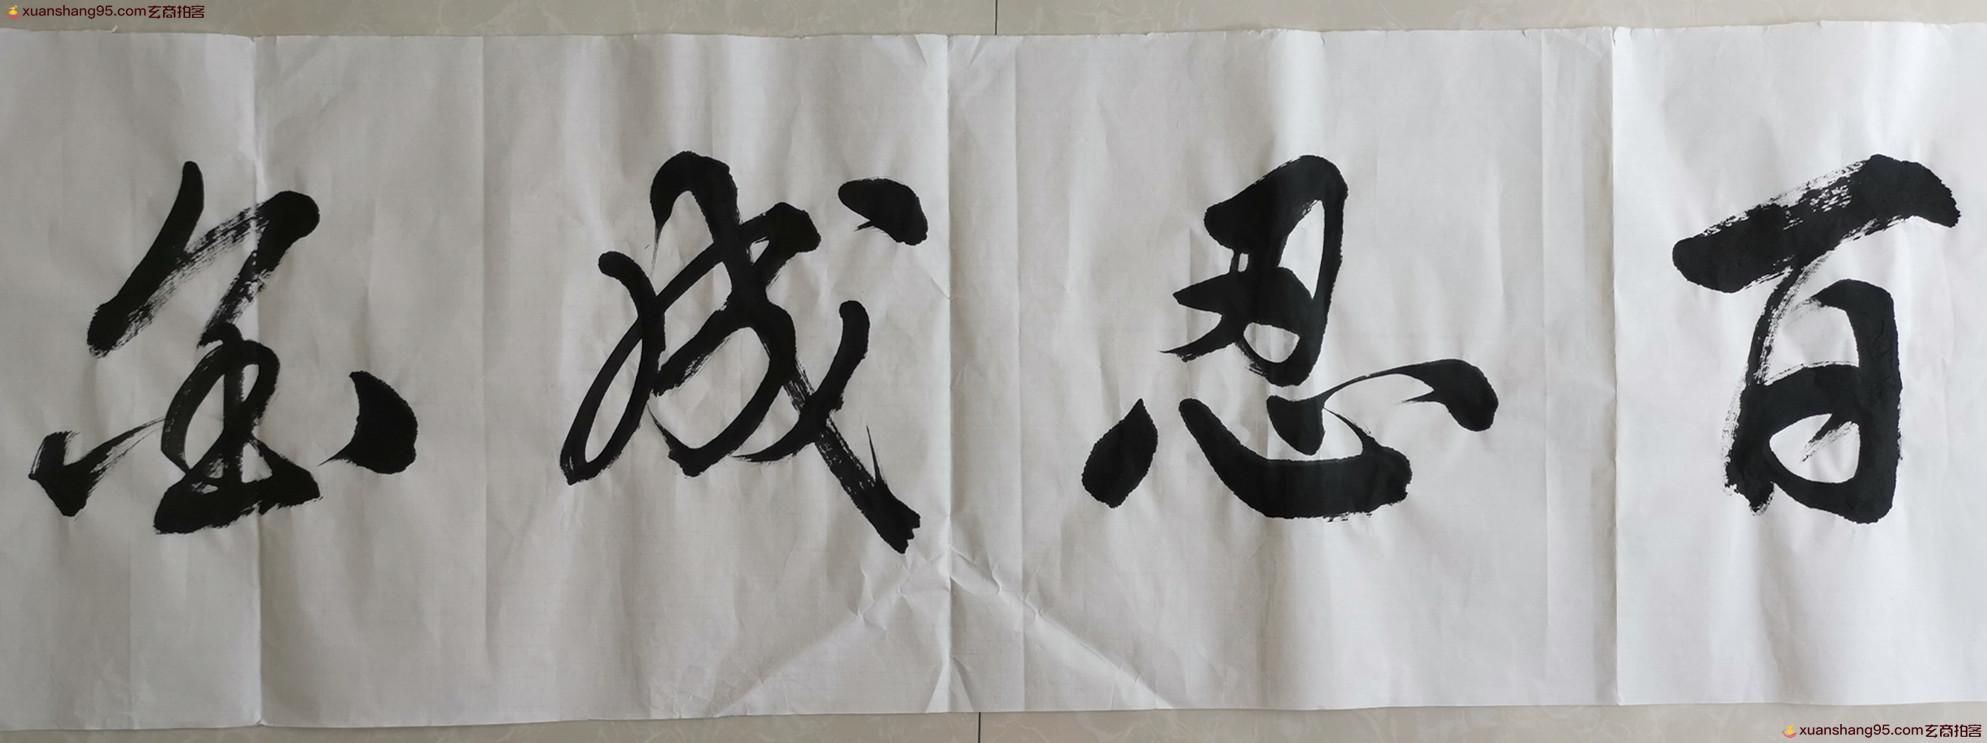 xuanshang95.com玄商拍客
百忍成金
xuanshang95.com玄商拍客